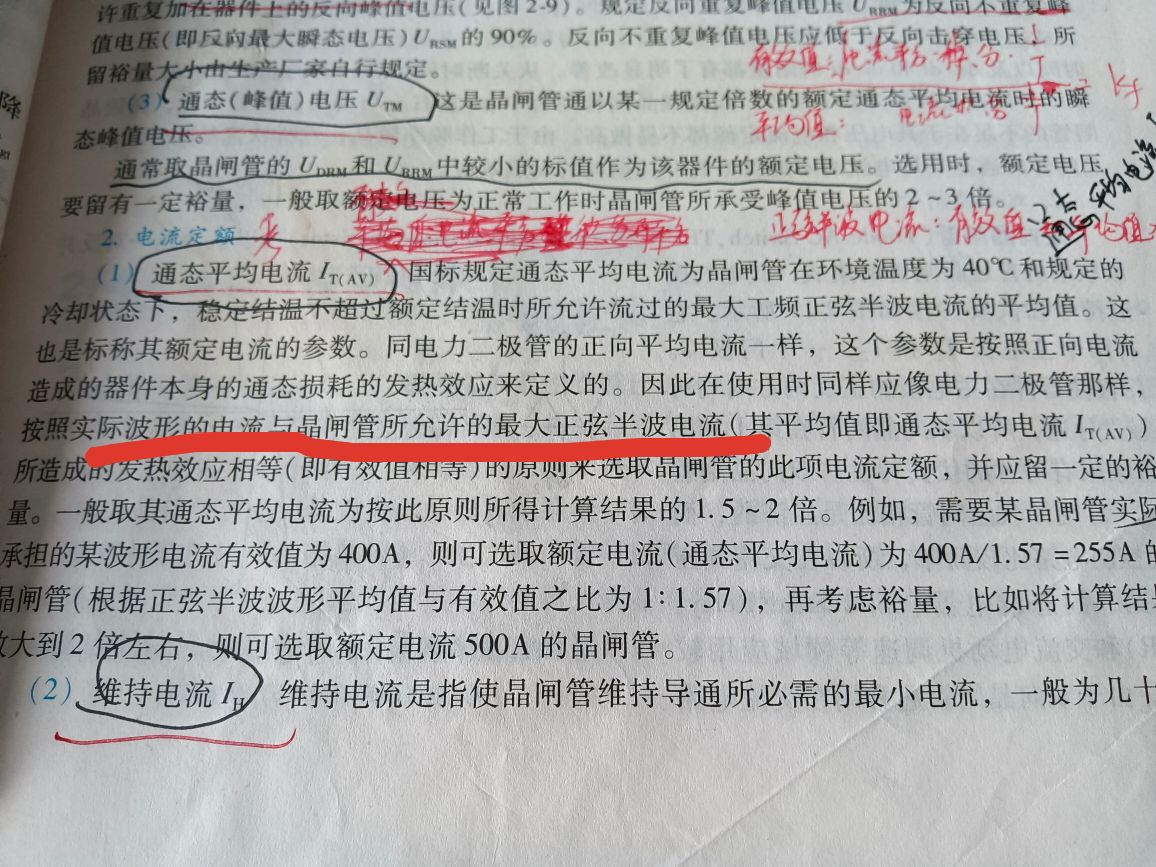 许重复加在器件上的反向峰值电压(见图 2-9)。规定反向重复峰值电压 URRM 为反向不重复峰
值电压(即反向最大瞬态电压)URSM 的 90%。反向不重复峰值电压应低于反向击穿电压，所
留裕量大小由生产厂家自行规定。
有效值：
(3) 通态(峰值)电压 UTM 这是晶闸管通以某一规定倍数的额定通态平均电流时的瞬
kf
态峰值电压。
平均值：
通常取晶闸管的 UDRM 和 URRM 中较小的标值作为该器件的额定电压。选用时，额定电压
要留有一定裕量，一般取额定电压为正常工作时晶闸管所承受峰值电压的 2～3 倍。
通态平均电流
2. 电流定额
考
正弦半波电流：有效值
平均值
(1) 通态平均电流 IT(AV) 国标规定通态平均电流为晶闸管在环境温度为 40℃ 和规定的
冷却状态下，稳定结温不超过额定结温时所允许流过的最大工频正弦半波电流的平均值。这
也是标称其额定电流的参数。同电力二极管的正向平均电流一样，这个参数是按照正向电流
造成的器件本身的通态损耗的发热效应来定义的。因此在使用时同样应像电力二极管那样，
按照实际波形的电流与晶闸管所允许的最大正弦半波电流(其平均值即通态平均电流 IT(AV))
所造成的发热效应相等(即有效值相等)的原则来选取晶闸管的此项电流定额，并应留一定的裕
量。一般取其通态平均电流为按此原则所得计算结果的 1.5～2 倍。例如，需要某晶闸管实际
承担的某波形电流有效值为 400A，则可选取额定电流(通态平均电流)为 400A/1.57 =255A 的
晶闸管(根据正弦半波波形平均值与有效值之比为 1:1.57)，再考虑裕量，比如将计算结果
放大到 2 倍左右，则可选取额定电流 500A 的晶闸管。
(2) 维持电流 IH 维持电流是指使晶闸管维持导通所必需的最小电流，一般为几十